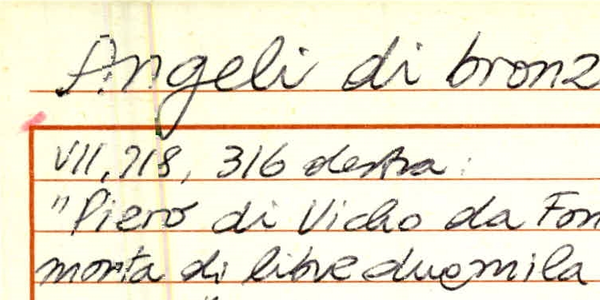 Angeli di bronz
VII, 718, 316 destra:
"Piero di Vicho da Fon
monta di libre duemila